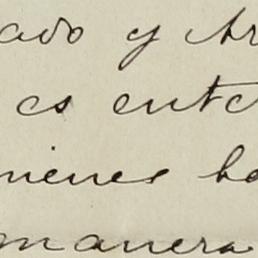 ado y Ar
es ente
nienes ha
manera